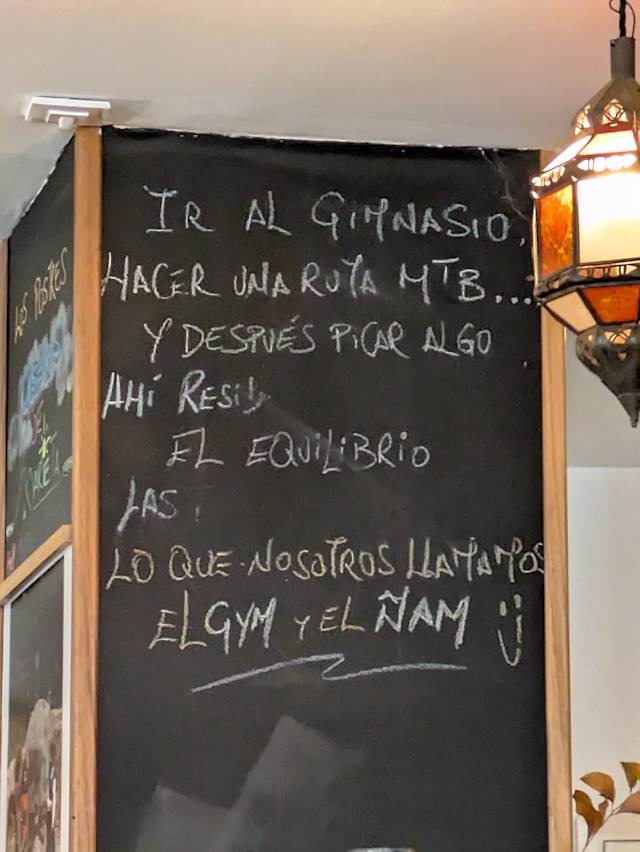 IR AL GIMNASIO,
HACER UNA RUTA MTB...
Y DESPUÉS PICAR ALGO
AHÍ
EL EQUILIBRIO
LAS
LO QUE NOSOTROS LLAMAMOS
EL GYM Y EL ÑAM
LOS POSTRES